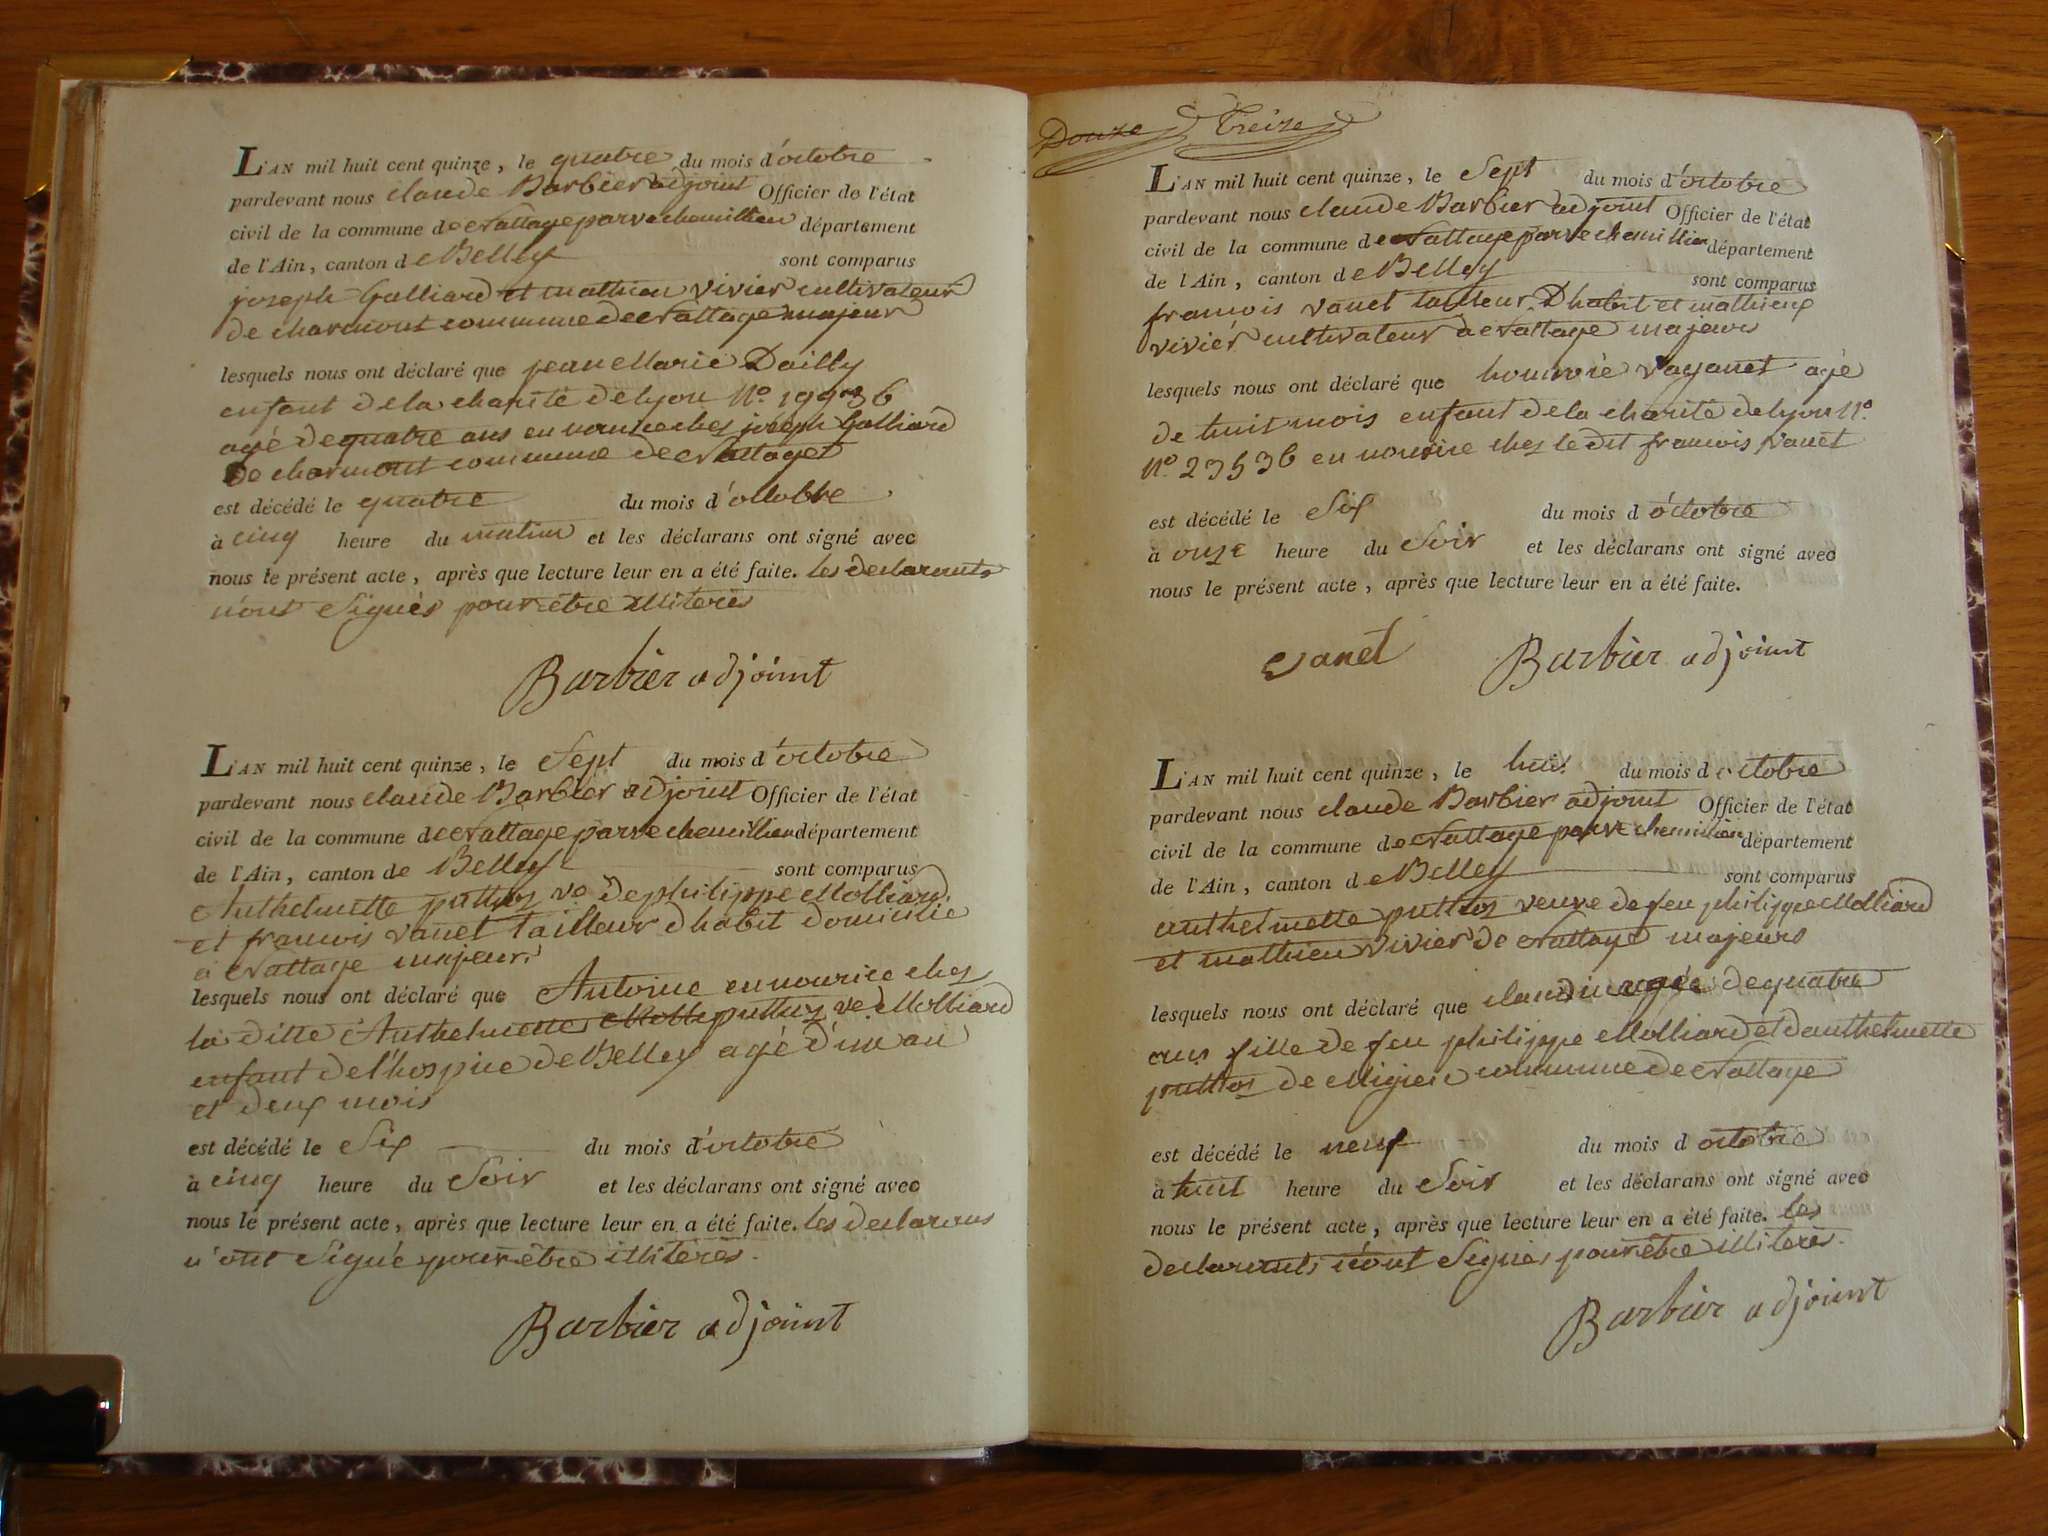 L'AN mil huit cent quinze, le quatre du mois d'octobre
pardevant nous claude Barbier adjoint Officier de l'état
civil de la commune de département
de l'Ain, canton de Belley sont comparus
joseph Galliard et mathieu vivier cultivateur
de charmont commune de majeur
lesquels nous ont déclaré que jean Marie Dailly
enfant de la charité de lyon N.o
agé de quatre ans en nourice ches joseph Galliard
De charmont commune de
est décédé le quatre du mois d'octobre
à cinq heure du matin et les déclarans ont signé avec
nous le présent acte, après que lecture leur en a été faite. les declarants
n'ont Signés pour être illiterés
Barbier adjoint
L'AN mil huit cent quinze, le Sept du mois d'octobre
pardevant nous claude Barbier adjoint Officier de l'état
civil de la commune de département
de l'Ain, canton de Belley sont comparus
Anthelmette ve. De philippe Molliard
et francois vanet tailleur d habit domicilié
a majeurs
lesquels nous ont déclaré que Antoine en nourice ches
la ditte Anthelmette ve. Molliard
enfant de l'hospice de Belley agé d'un an
et deux mois
est décédé le Six du mois d'octobre
à cinq heure du Soir et les déclarans ont signé avec
nous le présent acte, après que lecture leur en a été faite. les declarans
n'ont Signé pour être illiterés.
Barbier adjoint
Douze Treize
L'AN mil huit cent quinze, le Sept du mois d'octobre
pardevant nous claude Barbier adjoint Officier de l'état
civil de la commune de département
de l'Ain, canton de Belley sont comparus
francois vanet tailleur D habit et mathieu
vivier cultivateur a majeurs
lesquels nous ont déclaré que agé
de huit mois enfant de la charité de lyon N.o
N.o 23536 en nourice ches le dit francois vanet
est décédé le Six du mois d octobre
à onze heure du Soir et les déclarans ont signé avec
nous le présent acte, après que lecture leur en a été faite.
vanet Barbier adjoint
L'AN mil huit cent quinze, le huit du mois d octobre
pardevant nous claude Barbier adjoint Officier de l'état
civil de la commune de département
de l'Ain, canton de Belley sont comparus
anthelmette veuve de feu philippe Molliard
et mathieu vivier de majeurs
lesquels nous ont déclaré que agée de quatre
ans fille de feu philippe Molliard et d'anthelmette
de commune de
est décédé le neuf du mois d octobre
à huit heure du Soir et les déclarans ont signé avec
nous le présent acte, après que lecture leur en a été faite. les
declarants n'ont Signés pour être illiterés.
Barbier adjoint